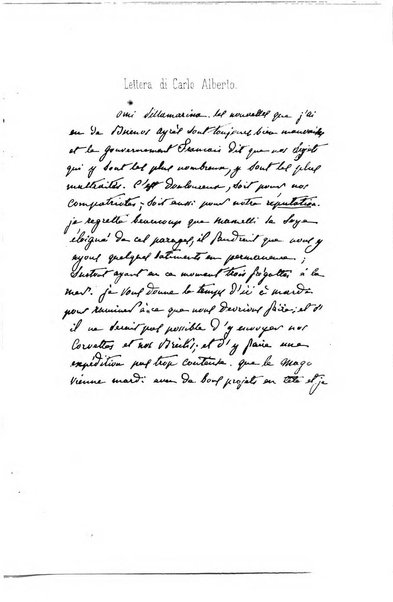 Lettera di Carlo Alberto.
omi Villamarina. les nouvelles que j'ai
eu de Buenos ayres sont toujours bien mauvaises
et le gouvernement Francais dit que nos Sujets
qui y sont les plus nombreux, y sont les plus
maltraités. C'est douloureux, soit pour nos
compatriotes; soit aussi pour notre réputation.
je regrette beaucoup que mameli se soye
éloigné de ces parages, il faudrait que nous y
ayons quelques batiments en permanence;
surtout ayant en ce moment trois fregattes à la
mer. je vous donne le temps d'ici à mardi
pour ruminer à ce que nous devrions faire, et s'
il ne serait pas possible d'y envoyer nos
Corvettes et nos Bricks; et d'y faire une
expédition pas trop couteuse. que la mago
vienne mardi avec de bons projets en tete et je